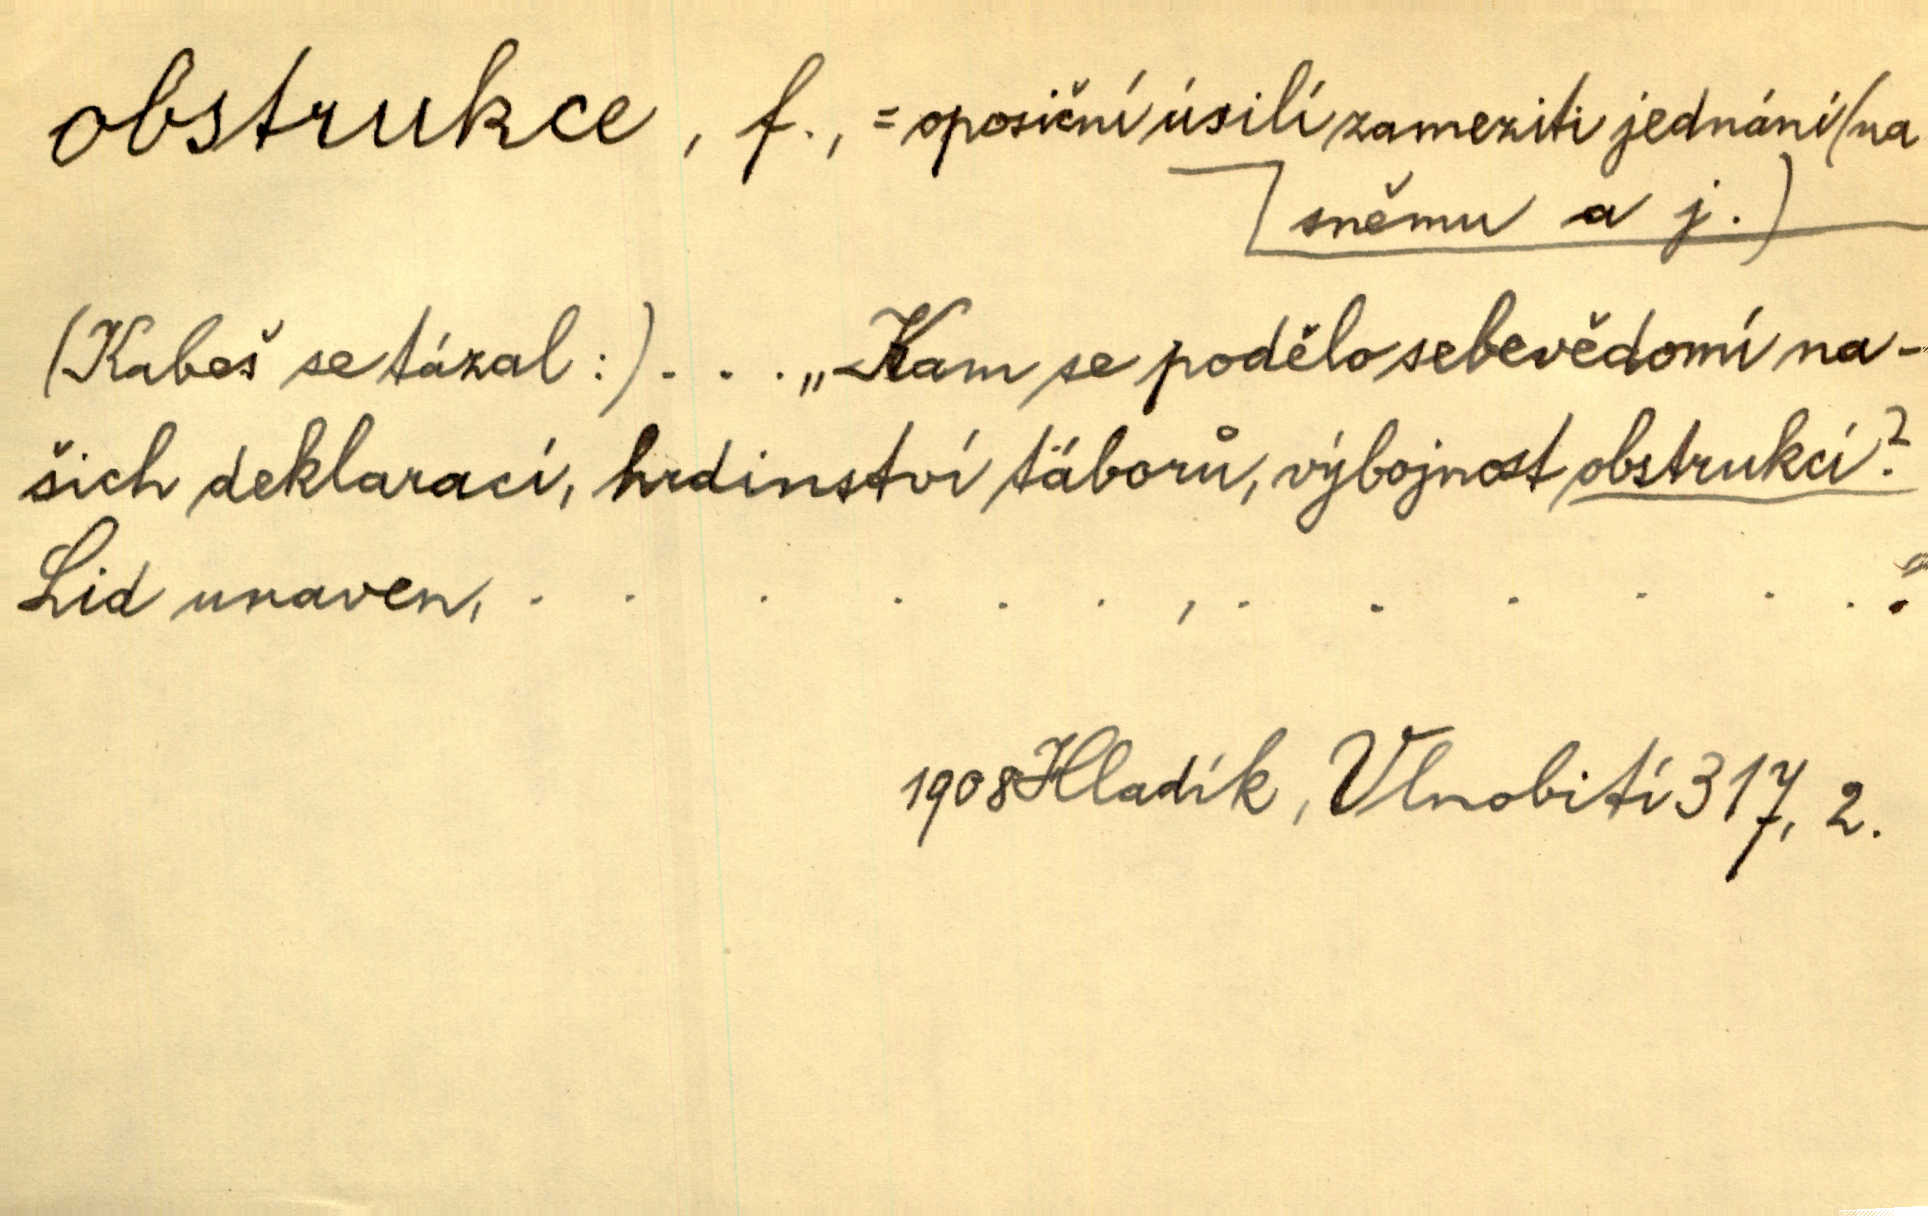 obstrukce, f., = oposiční úsilí zameziti jednání (na
sněmu a j.)
(Kabeš se tázal :) . . . „Kam se podělo sebevědomí na-
šich deklarací, hrdinství táborů, výbojnost obstrukcí?
Lid unaven, . . . . . . , . . . . . . ?
1908 Hladík, Vlnobití 317, 2.